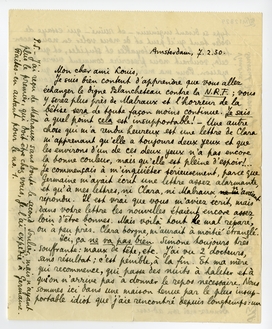 Amsterdam, 7.2.30.
Mon cher ami Louis,
Je suis bien content d'apprendre que vous allez
échanger le signe Blancheteau contre la N.R.F.; vous
y serez plus près de Malraux et l'horreur de la
bêtise sera de toute façon moins continue. Je sais
à quel point cela est insupportable! — Une autre
chose qui m'a rendu heureux est une lettre de Clara
m'apprenant qu'elle a toujours deux yeux et que
de environs d'un de ces deux yeux n'a pas encore
la bonne couleur, mais qu'elle est pleine d'espoir!..
Je commençais à m'inquiéter sérieusement, parce que
Germaine m'avait écrit une lettre assez alarmante,
et qu'à mes lettres, ni Clara, ni Malraux
répondu. Il est vrai que vous m'aviez écrit, mais
dans votre lettre les nouvelles étaient encore assez
loin d'être bonnes. Mais voilà, tout est réparé,
ou à peu près. Clara borgne, m'aurait à moitié étranglé.
Ici, ça ne va pas bien. Simone toujours très
souffrante: maux de tête, etc. J'ai vu 2 docteurs,
sans résultat; c'est pénible, à la fin. Et ma mère
qui recommence, qui passe des nuits à haleter et à
qui on n'arrive pas à donner le repos nécessaire. Nous
sommes ici dans une maison tenue par le plus insup-
portable idiot que j'aie rencontré depuis longtemps: un
P.S. J'ai reçu de Malraux